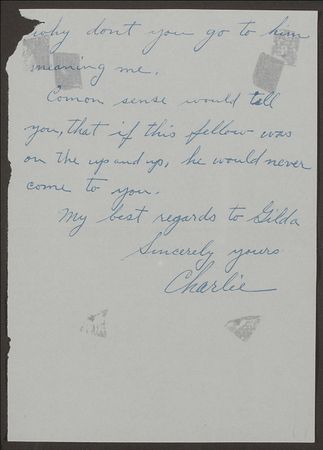 why dont you go to him
meaning me.
Comon sense would tell
you, that if this fellow was
on the up and up, he would never
come to you.
My best regards to Gilda
Sincerely yours
Charlie